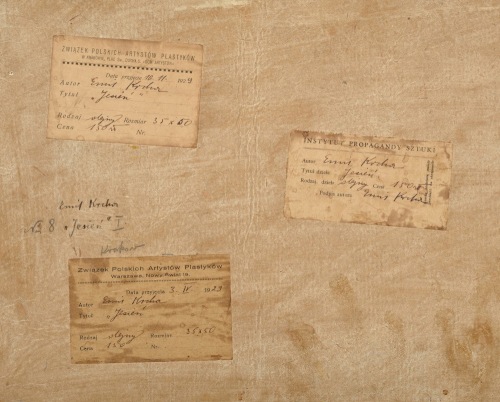 ZWIĄZEK POLSKICH ARTYSTÓW PLASTYKÓW
Data przyjęcia 18. II. 1929
Autor Emil Krcha
Tytuł „Jesień"
Rodzaj olejny Rozmiar 35 x 50
Cena 150 zł Nr.
INSTYTUT PROPAGANDY SZTUKI
Autor Emil Krcha
Tytuł dzieła „Jesień"
Rodzaj dzieła olejny Cena 150 zł
Podpis autora Emil Krcha
Emil Krcha
8 „Jesień" I
Kraków
Związek Polskich Artystów Plastyków
Warszawa, Nowy-Świat 19.
Data przyjęcia 3. IV 1929
Autor Emil Krcha
Tytuł „Jesień
Rodzaj olejny Rozmiar 35x50
Cena 150 Nr.